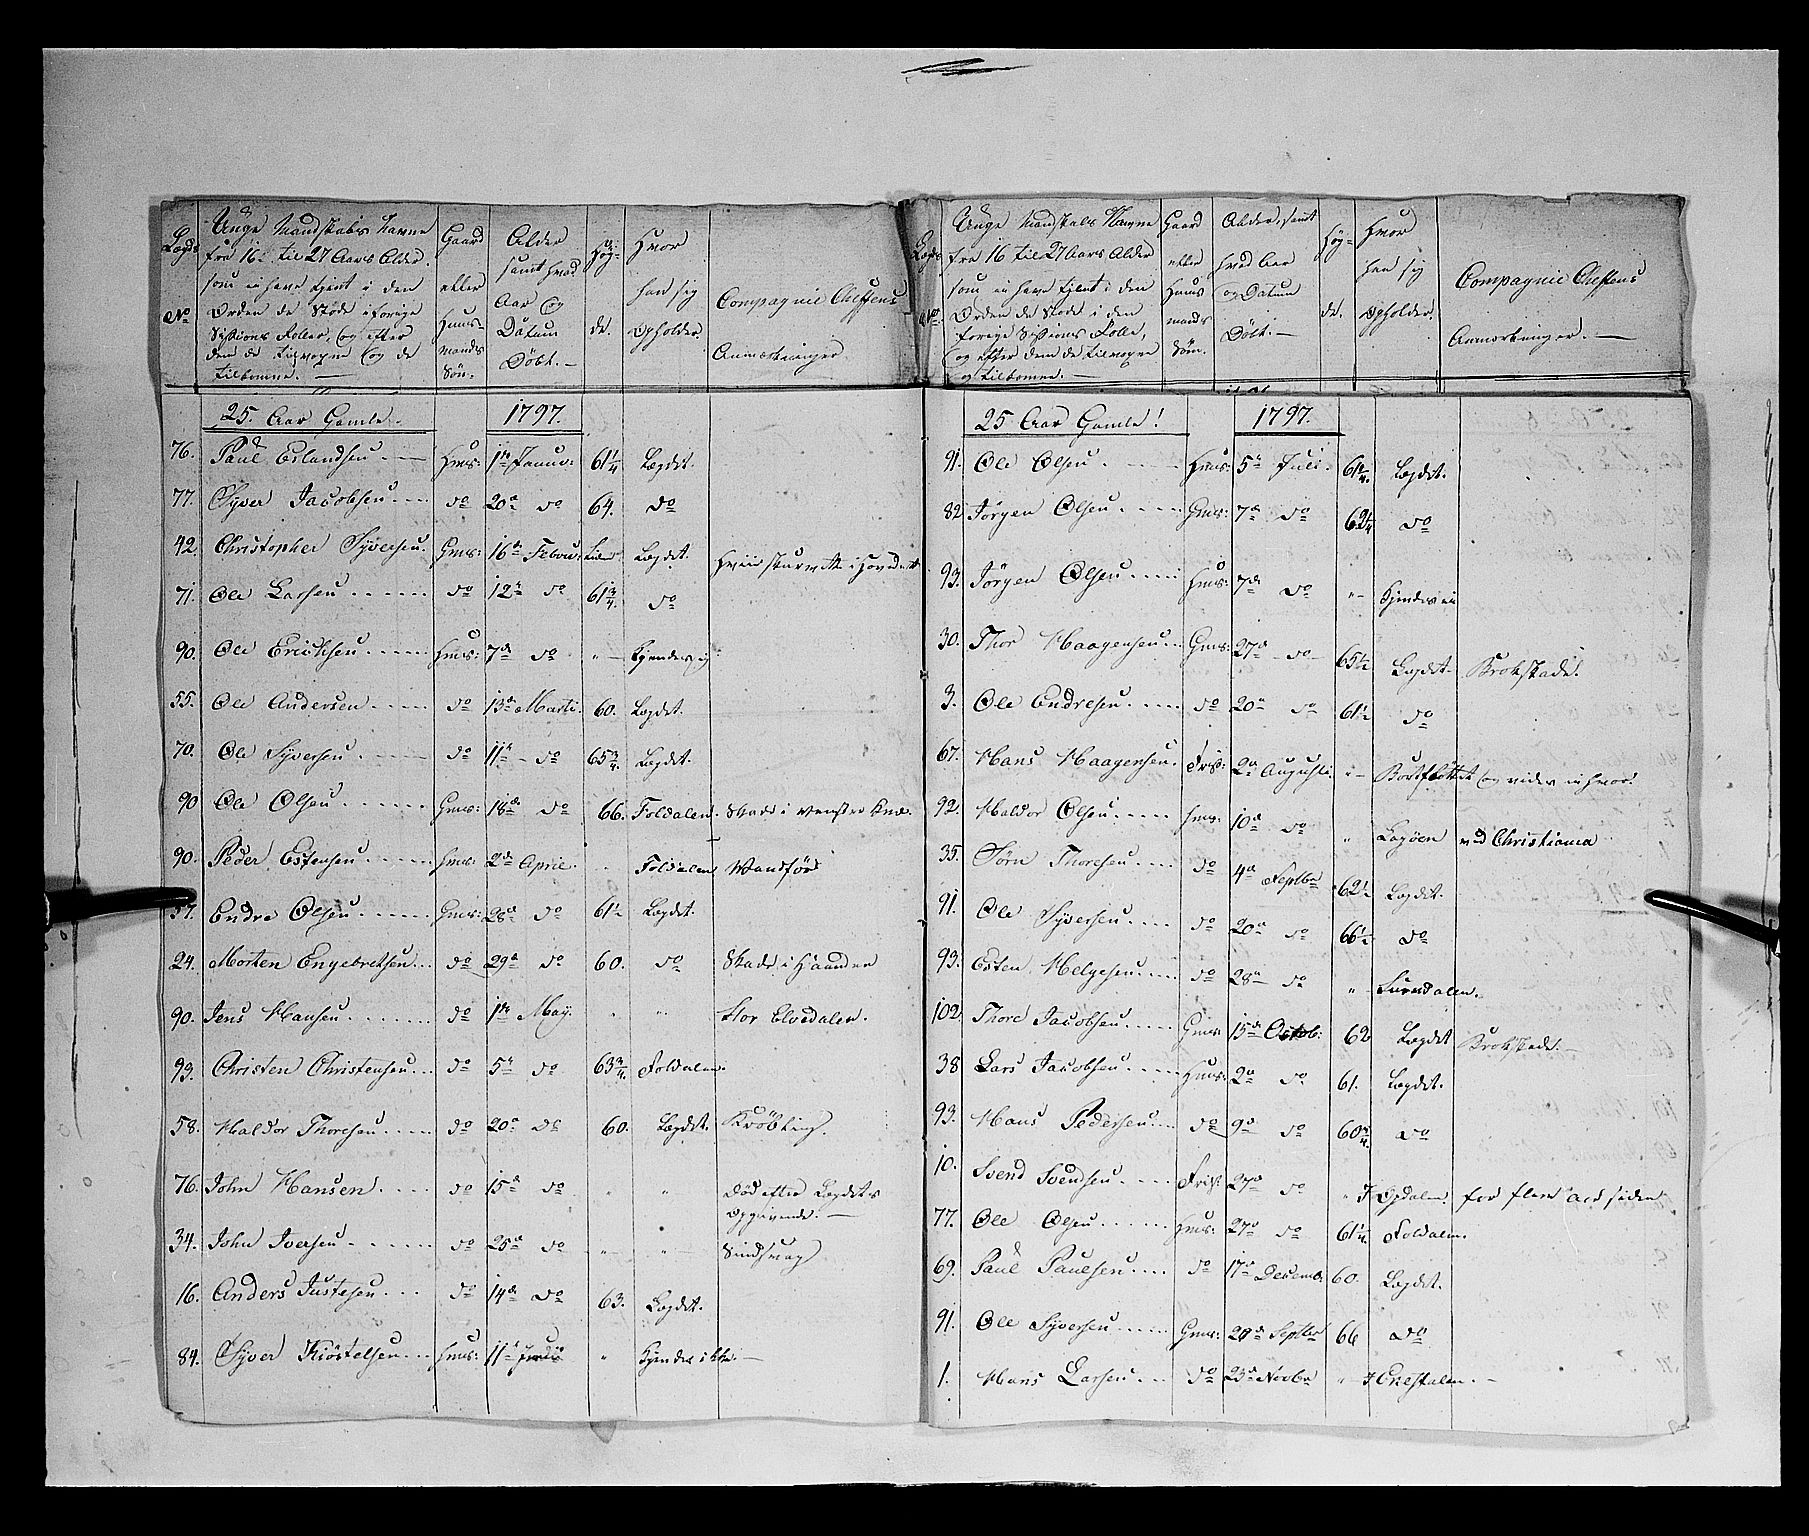 Lægds No
Unge Mandskabs Navne fra 16 til 27 Aars Alder som ei have tient i den Orden de Stode i forige Sessions Roller, og efter dem de tilvoxne og de tilkomne. —
Gaard eller Huusmands Søn.
Alder samt hvad Aar og Datum Døbt. —
Høyde.
Hvor han sig Opholder.
Compagnie Cheffens Anmærkninger
25 Aar Gamle. 1797.
76. Paul Erlandsen Hms: 1te Janu: 61 1/4 Lægdet.
77. Syver Jacobsen do 20de do 64. do
42. Christopher Syversen. Gms: 16de Febru: Lægdet.
71. Ole Larsen do 12te do 61 3/4 do
90. Ole Erichsen Hms: 7de do " Kjendes ej
55. Ole Andersen do 13de Marti. 60. Lægdet.
70. Ole Syversen do 11te do 65 3/4 Lægdet.
90 Ole Olsen Gms: 18de do 66. Foldalen. Skade i venstre Knæ.
90. Peder Estensen Hms: 2de April. Foldalen Vandfør
57. Endre Olsen Gms: 28de do 61 1/2 Lægdet.
24. Morten Engebretsen do 29de do 60. do Skade i Haanden
90. Jens Hansen do 1te May. " " Stor Elvedalen.
93. Christen Christensen do 5te do 63 3/4 Foldalen.
58. Haldor Thoresen do 20de do 60. Lægdet. Krøbling.
76. John Hansen do 15de do " " Død efter Lægdets Opgivende. —
34. John Iversen do 25de do " " Sindsvag
16. Anders Justesen do 14de do 63. Lægdet.
84. Syver Kiøstelsen Hms: 11te Junii " Kjendes ikke. —
Lægds No
Unge Mandskabs Navne fra 16 til 27 Aars Alder som ei have tjent i den Orden de Stode i den forige Sessions Rolle, og efter dem de tilvoxne og tilkomne. —
Gaard eller Huusmands Søn.
Alder, samt hvad Aar og Datum Døbt. —
Høyde.
Hvor han sig Opholder.
Compagnie Cheffens Anmærkninger. —
25 Aar Gamle! 1797.
91. Ole Olsen Hms: 5te Juli. Lægdet.
82 Jørgen Olsen Gms: 7de do do
93. Jørgen Olsen Hms: 7de do " Kjendes ei
30. Thor Haagensen Gms: 27de do 65 1/2 Lægdet. Krokstade.
3. Ole Endresen do 20de do 61 1/2 do
67. Hans Haagensen. 2de Augusti. " Bortflöttet og vides ei hvor.
92. Haldor Olsen Hms: 10de do " Ladøen ved Christiania
35. Sørn Thoresen do 4de Septbr 62 1/2 Lægdet.
91. Ole Syversen do 20de do 66 1/2 do
93. Esten Helgesen do 28de do " Surndalen.
102. Thore Jacobsen Gms 15de Octob: 62 Lægdet Krokstade. —
38 Lars Jacobsen Hms: 2de do 61. Lægdet.
93. Hans Pedersen do 9de do 60 3/4 do
10. Svend Svendsen 27de do " I Opdalen. for flere Aar siden
77. Ole Olsen Hms: 27de do 61 1/4 Foldalen.
69. Paul Paulsen do 17de Decemb. 60. Lægdet.
91. Ole Syversen Gms: 29de Septbr 66 do
1. Hans Larsen do 23de Novbr " —